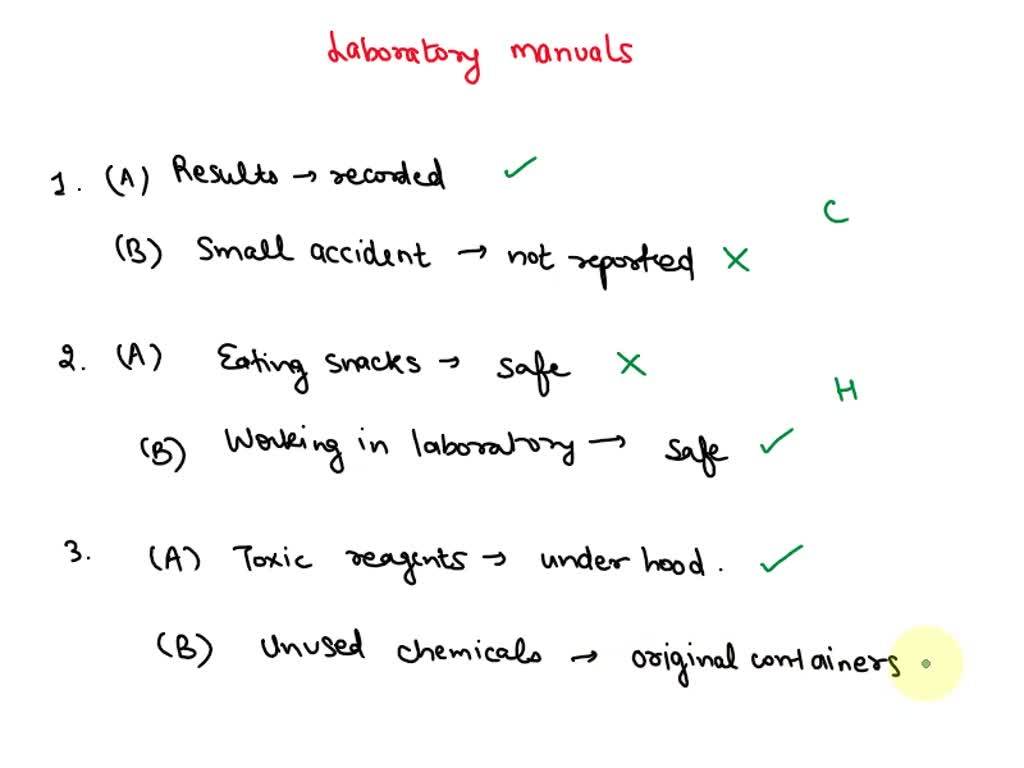 Laboratory manuals
1. (A) Results → recorded ✓
C
(B) Small accident → not reported X
2. (A) Eating snacks → safe X
H
(B) Working in laboratory → safe ✓
3. (A) Toxic reagents → under hood. ✓
(B) Unused chemicals → original containers